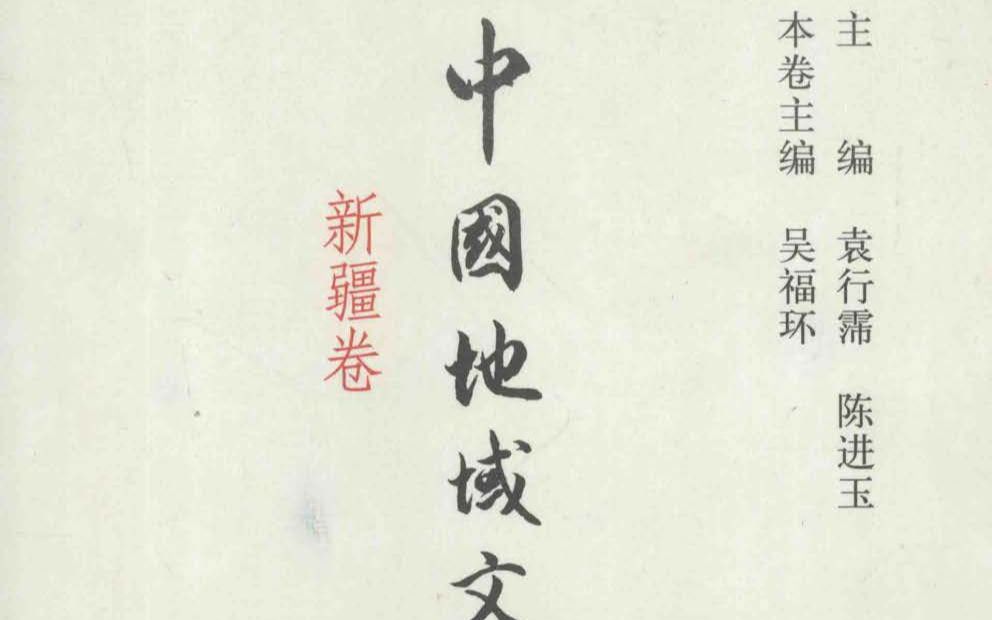 主 编 袁行霈 陈进玉
本卷主编 吴福环
中國地域文
新疆卷